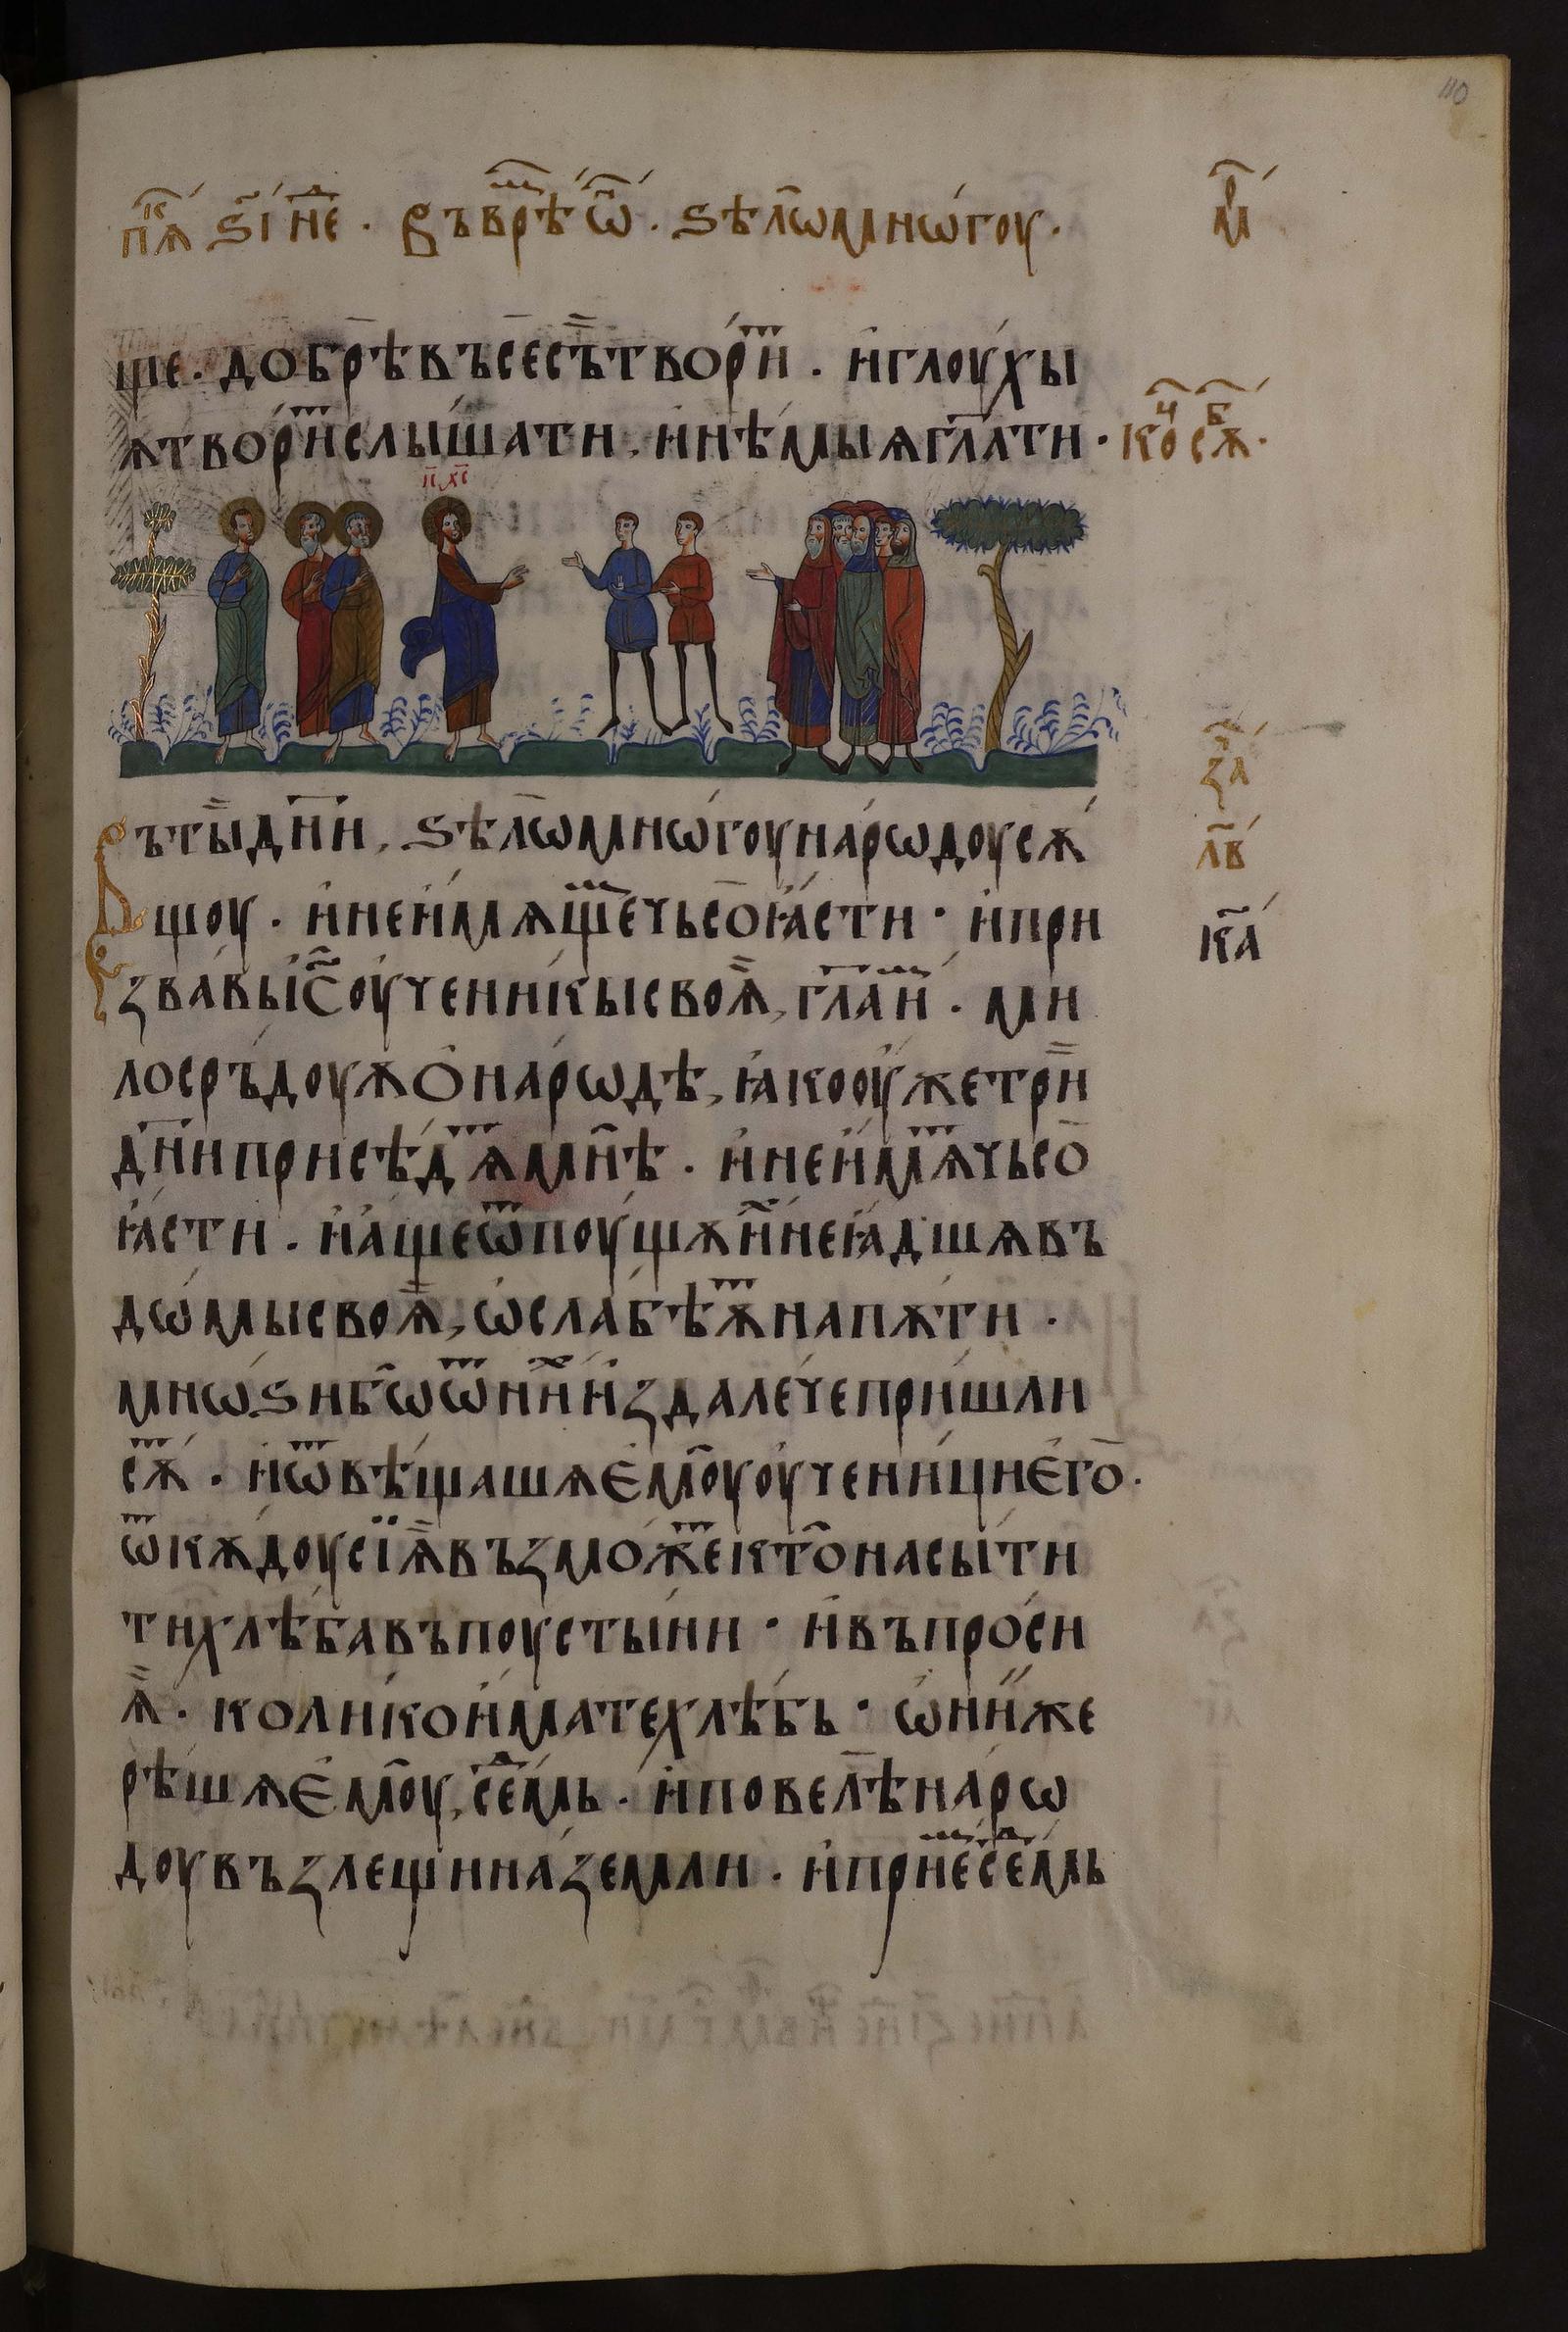 110
пѧⷦ҇ ѕ҃і нⷣе . въ врⷨѣ ѡⷩ҇ . ѕѣлѡ мнѡ́гоу .
рⷨ
ще . добрѣ въсе сътворⷮи . и глоу́хы
ѧ творⷮи слы́шати , и нѣ́мыѧ гл҃ати . ко ⷱ сѫⷠ .
і҃с х҃с
за
Въ ты дн҃и , ѕѣлѡ мнѡ́гоу нарѡдоу сѫ́
лв
щоу . и не имѧщⷨе чьсо ꙗсти . и при
к҃а
зва́вы і҃с оученикы своѧ , гл҃а иⷨ . ми
лосръдоуѫ о нарѡдѣ , ꙗко оуже три
дн҃и присѣдѧⷮ мнѣ . и не имѧⷮ чьсо
ꙗсти . и аще ѿпоущѫ и не ꙗдшѧ въ
дѡмы своѧ , ѡслабѣѫⷮ на пѫти .
мнѡѕи бѡ ѿ ниⷯ издалече пришли
сѫⷮ . и ѿвѣщашѧ емоу оученици его .
ѿкѫдоу сїѧ възможеⷮ кто насытити
ти хлѣба въ поустыни . и въпроси
ѧ . колико имате хлѣбь . ѡни же
рѣшѧ емоу , сеⷣмь . и повелѣ нарѡ
доу възлещи на земли . и приеⷨ сеⷣмь